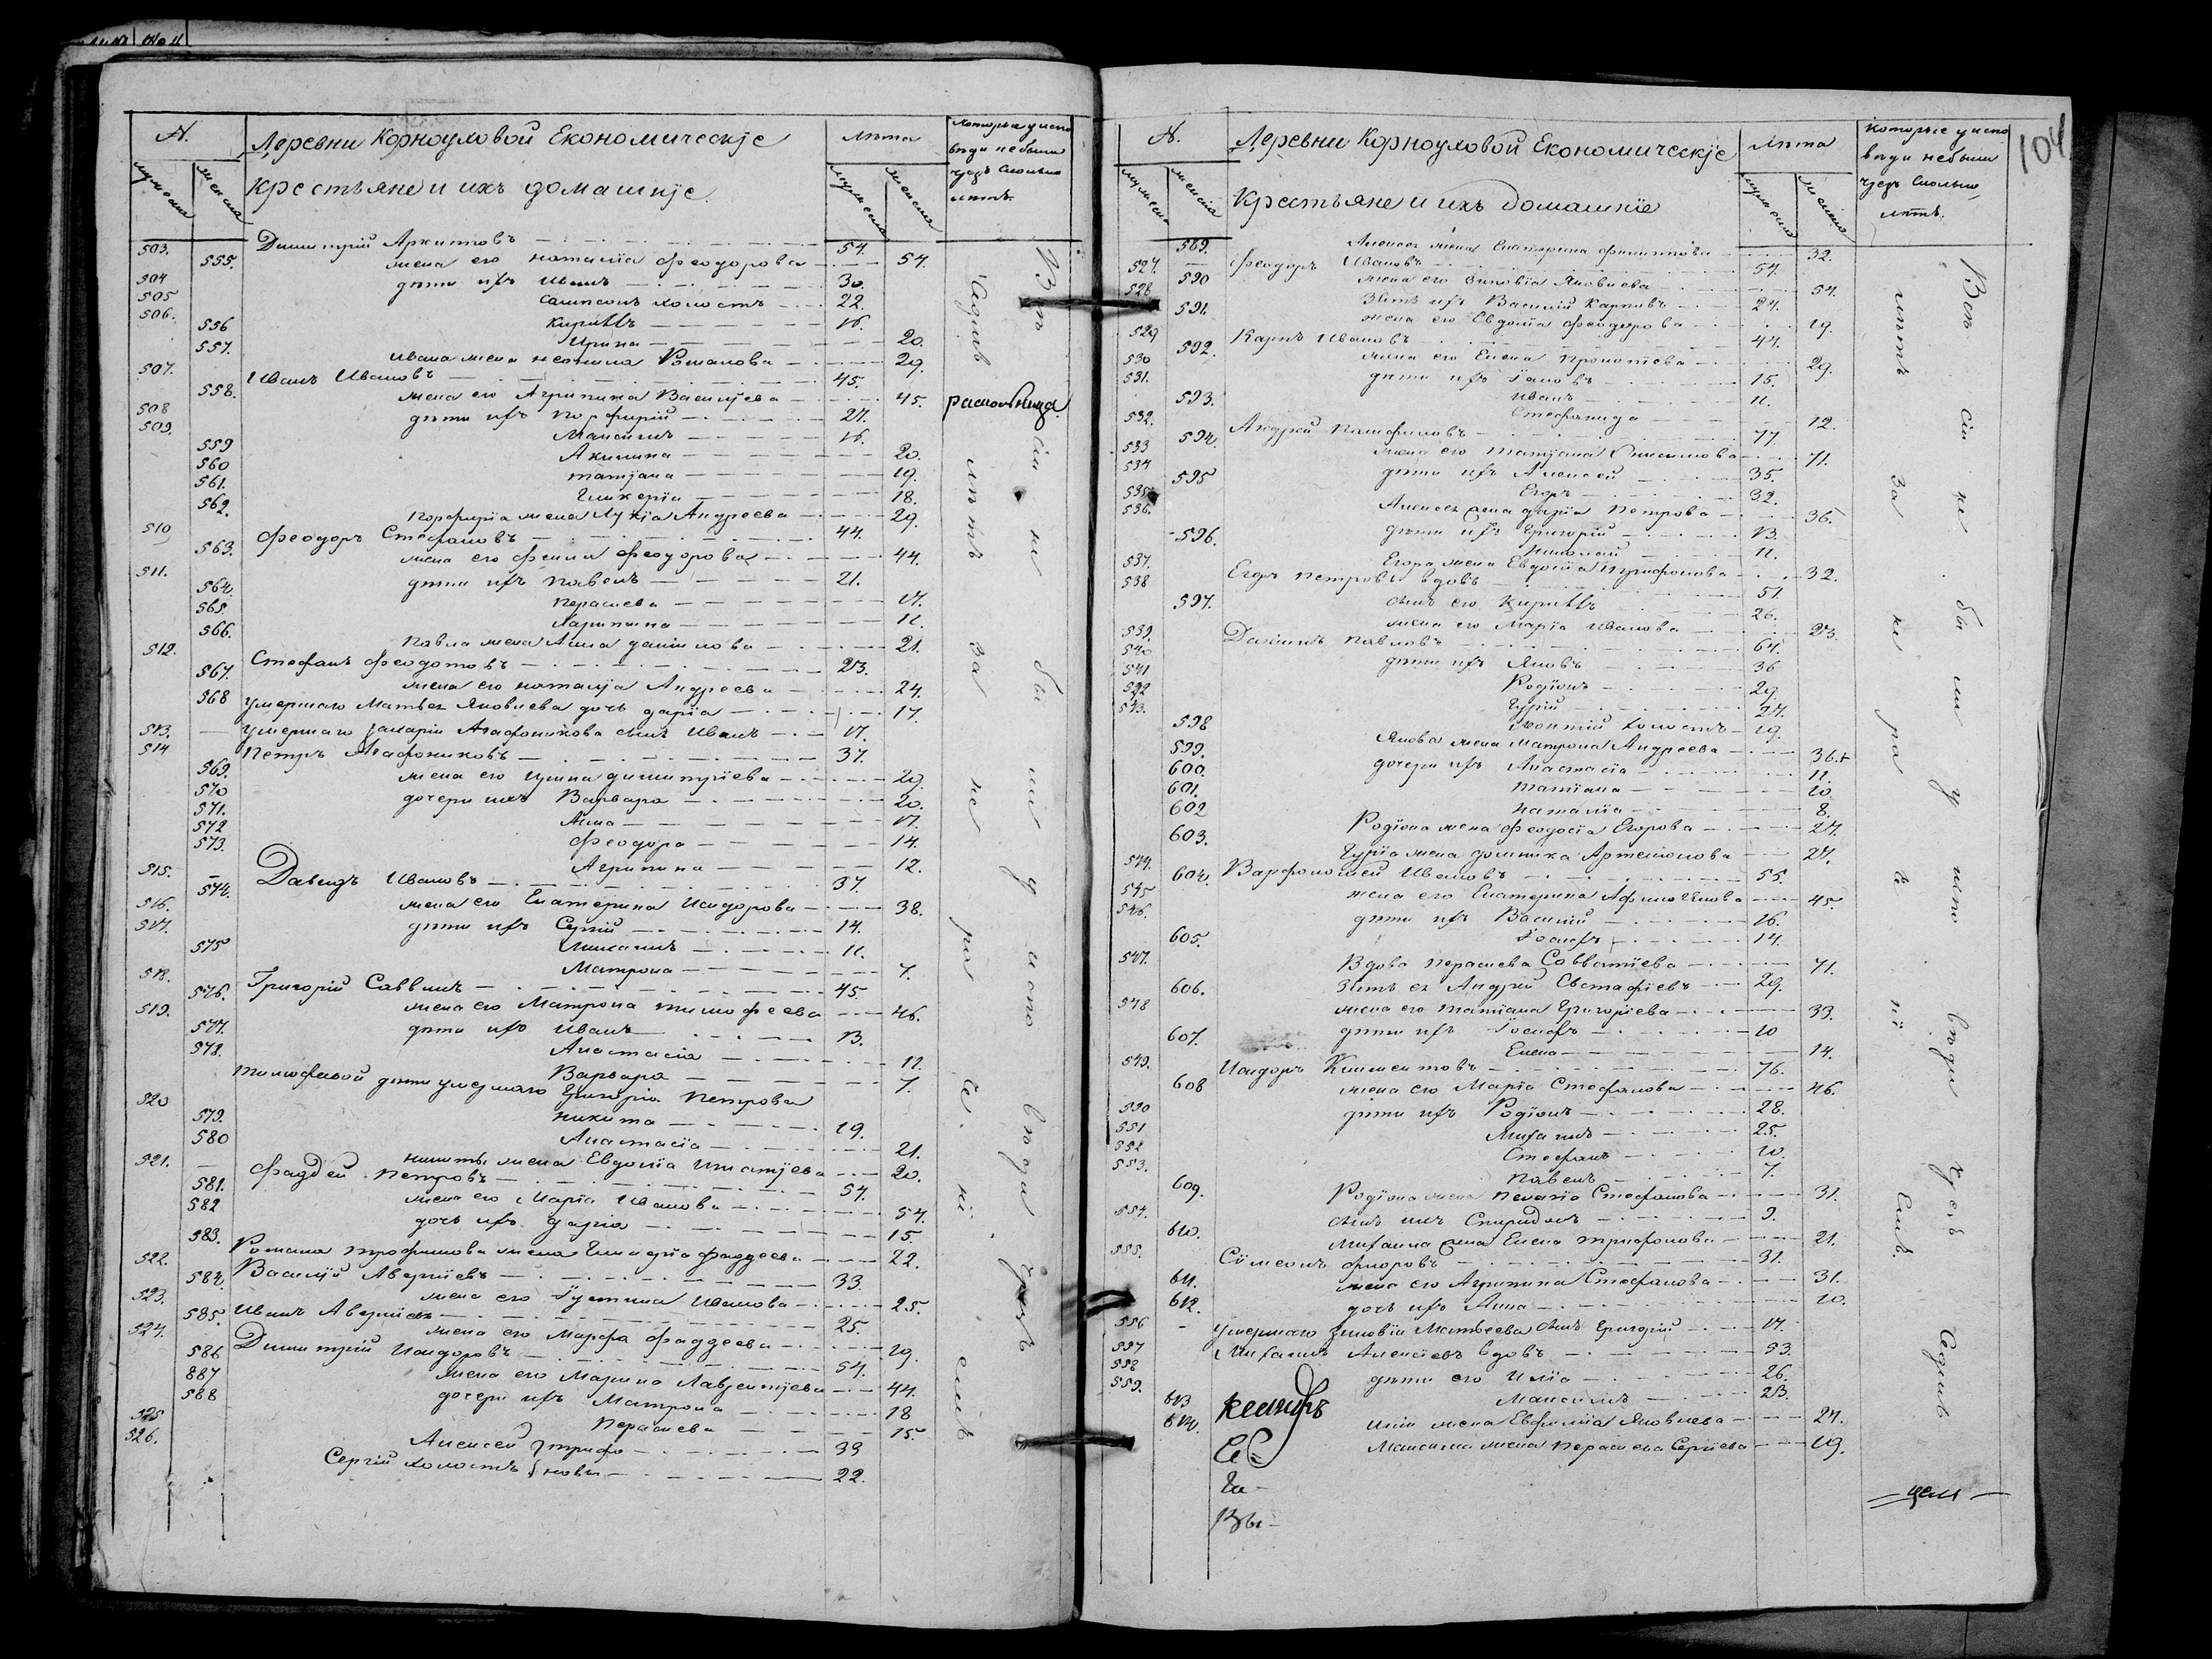 104
№.
Деревни Корноуловой Економическіе
Крестьяне и ихъ домашніе.
мужеска
женска
лѣта
мужеска
женска
которые у испо
вѣди небыли
чрезъ сколько
лѣтъ.
503. Димитрій Архиповъ 54.
555. жена его наталіа феодорова 54.
504 дѣти ихъ Иванъ 30.
505 Сампсонъ холостъ 22.
506. Кириллъ 16.
556 Ирина 20.
557. Ивана жена неонила Романова 29.
507. Иванъ Ивановъ 45.
558. жена его Агрипина Василіева 45. раскольница
508 дѣти ихъ Порфирій 27.
509. Максимъ 16.
559 Акилина 20.
560 татіана 19.
561. Гликеріа 18.
562. Порфиріа жена Лукіа Андреева 29.
510 Феодоръ Стефановъ 44.
563. жена его феклa феодорова 44.
511. дѣти ихъ Павелъ 21.
564. Параскева 17.
565 11.
566. Павла жена Анна даниилова 21.
512. Стефанъ феодотовъ 23.
567. жена его наталіа Андреева 24.
568 умершаго Матвея Яковлева дочь даріа 17.
513. умершаго Захаріи Агафоникова сынъ Иванъ 17.
514 Петръ Агафониковъ 37.
569. жена его Ирина димитріева 29.
570 дочери ихъ Варвара 20.
571. Анна 17.
572 Феодора 14.
573. Агрипина 12.
515. Давидъ Ивановъ 37.
574. жена его Екатерина Исидорова 38.
516. дѣти ихъ Сергій 14.
517. Михаилъ 11.
575 Матрона 7.
518. Григорій Саввинъ 45
576. жена его Матрона тимофеева 46.
519. дѣти ихъ Иванъ 13.
577. Анастасіа 11.
578. Варвара 7.
Тимофеевой дѣти умершаго Григоріа Петрова
520 Никита 19.
579. Анастасіа 21.
580 никиты жена Евдокіа Игнатіева 20.
521. Фаддей Петровъ 54.
581. жена его Маріа Иванова 54.
582 дочь ихъ даріа 15
583. Романа трофимова жена Гликеріа фаддеева 22.
522. Василій Аверкіевъ 33.
584. жена его Іустина Иванова 25.
523. Иванъ Аверкіевъ 25.
585. жена его Марфа фаддеева 19.
524. Димитрій Исидоровъ 54.
586 жена его Марина Лаврентіева 44.
887 дочери ихъ Матрона 18
588 Параскева 15.
525 Алексей трифо 33
526. Сергій холостъ новы 22.
Всѣ сіи не были у исповѣди чрезъ
Единъ лѣтъ за не ра
№.
Деревни Корноуловой Економическіе
Крестьяне и ихъ домашніе
мужеска
женска
лѣта
мужеска
женска
которые у испо
вѣди небыли
чрезъ сколько
лѣтъ.
589. Алексея жена Екатерина филиппова 32.
527. Феодоръ Ивановъ 54.
590 жена его Зиновіа Яковлева 54.
528 Зять ихъ Василій Карповъ 24.
591. жена его Евдокіа феодорова 19.
529 Карпъ Ивановъ 44.
592. жена его Елена Прокопіева 29.
530 дѣти ихъ Іаковъ 15.
531. Иванъ 11.
593. Стефанида 12.
532. Андрей Памфиловъ 77
594. жена его татіана 71.
533 дѣти ихъ Алексей 35.
534 Егоръ 32.
595 Алексея жена даріа Петрова 36.
535. дѣти ихъ Григорій 13.
536. Николай 11.
596. Егора жена Евдокіа трифонова 32.
537. Егоръ Петровъ вдовъ 51
538 сынъ его Кириллъ 26.
597. жена его Маріа Иванова 23.
539. Даніилъ Павловъ 64.
540 дѣти ихъ Яковъ 36
541 Родіонъ 29.
542 Гурій 24.
543. холостъ 19.
598 Якова жена Матрона Андреева 36.
599. дочери ихъ Анастасіа 11.
600. татіана 10.
601. Наталіа 8.
602 Родіона жена Феодосіа Егорова 27.
603. Гуріа жена домника Артемонова 24.
544. Варфоломей Ивановъ 55.
604. жена его Екатерина 45.
545 дѣти ихъ Василій 16.
546. Іосифъ 14.
605. Вдова Параскева Савватіева 71.
547. Зять ея Андрей Евстафіевъ 29.
606. жена его татіана Григоріева 33.
548 дѣти ихъ Іосифъ 10
607. Елена 14.
549. Исидоръ Климентовъ 76.
608 жена его Маріа Стефанова 46.
550 дѣти ихъ Родіонъ 28.
551 Михаилъ 25.
552 Стефанъ 10.
553. Павелъ 7.
609. Родіона жена Пелагіа Стефанова 31.
554. сынъ ихъ Спиридонъ 9.
610. Михаила жена Елена трифонова 21.
555. Сѵмеонъ флоровъ 31.
611. жена его Агрипина Стефанова 31.
612. дочь ихъ Анна 10.
556 умершаго Зиновіи Матвеева сынъ Григорій 17.
557 Михаилъ Алексіевъ вдовъ 53.
558 дѣти его Иліа 26.
559. Максимъ 23.
613 Иліи жена Евфиміа Яковлева 27.
614. Максима жена Параскева Сергіева 19.
Всѣ сіи не были у исповѣди чрезъ Единъ
лѣтъ за не ра